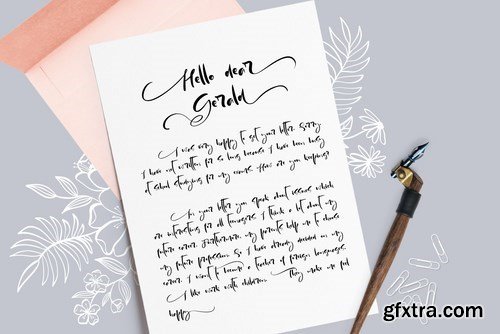 Hello dear
Gerald
I was very happy to get your letter. Sorry,
I have not written for so long because I have been busy
at school studying for my exams. How are you keeping?
In your letter you speak about issues which
are interesting for all teenagers. I think a lot about my
future career. Furthermore, my parents help me to choose
my future profession. So I have already decided on my
career. I want to become a teacher of foreign languages.
I like work with children. They make me feel
happy
gfxtra.com